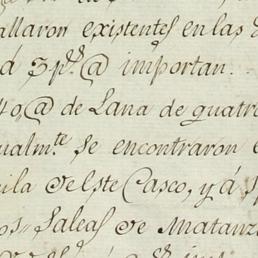 allaron existentes en las
á 3 p.s @ importan.
40, @ de Lana de quatro
ualm.te se encontraron
ila de este Casco, y á
os Saleas de Matanz